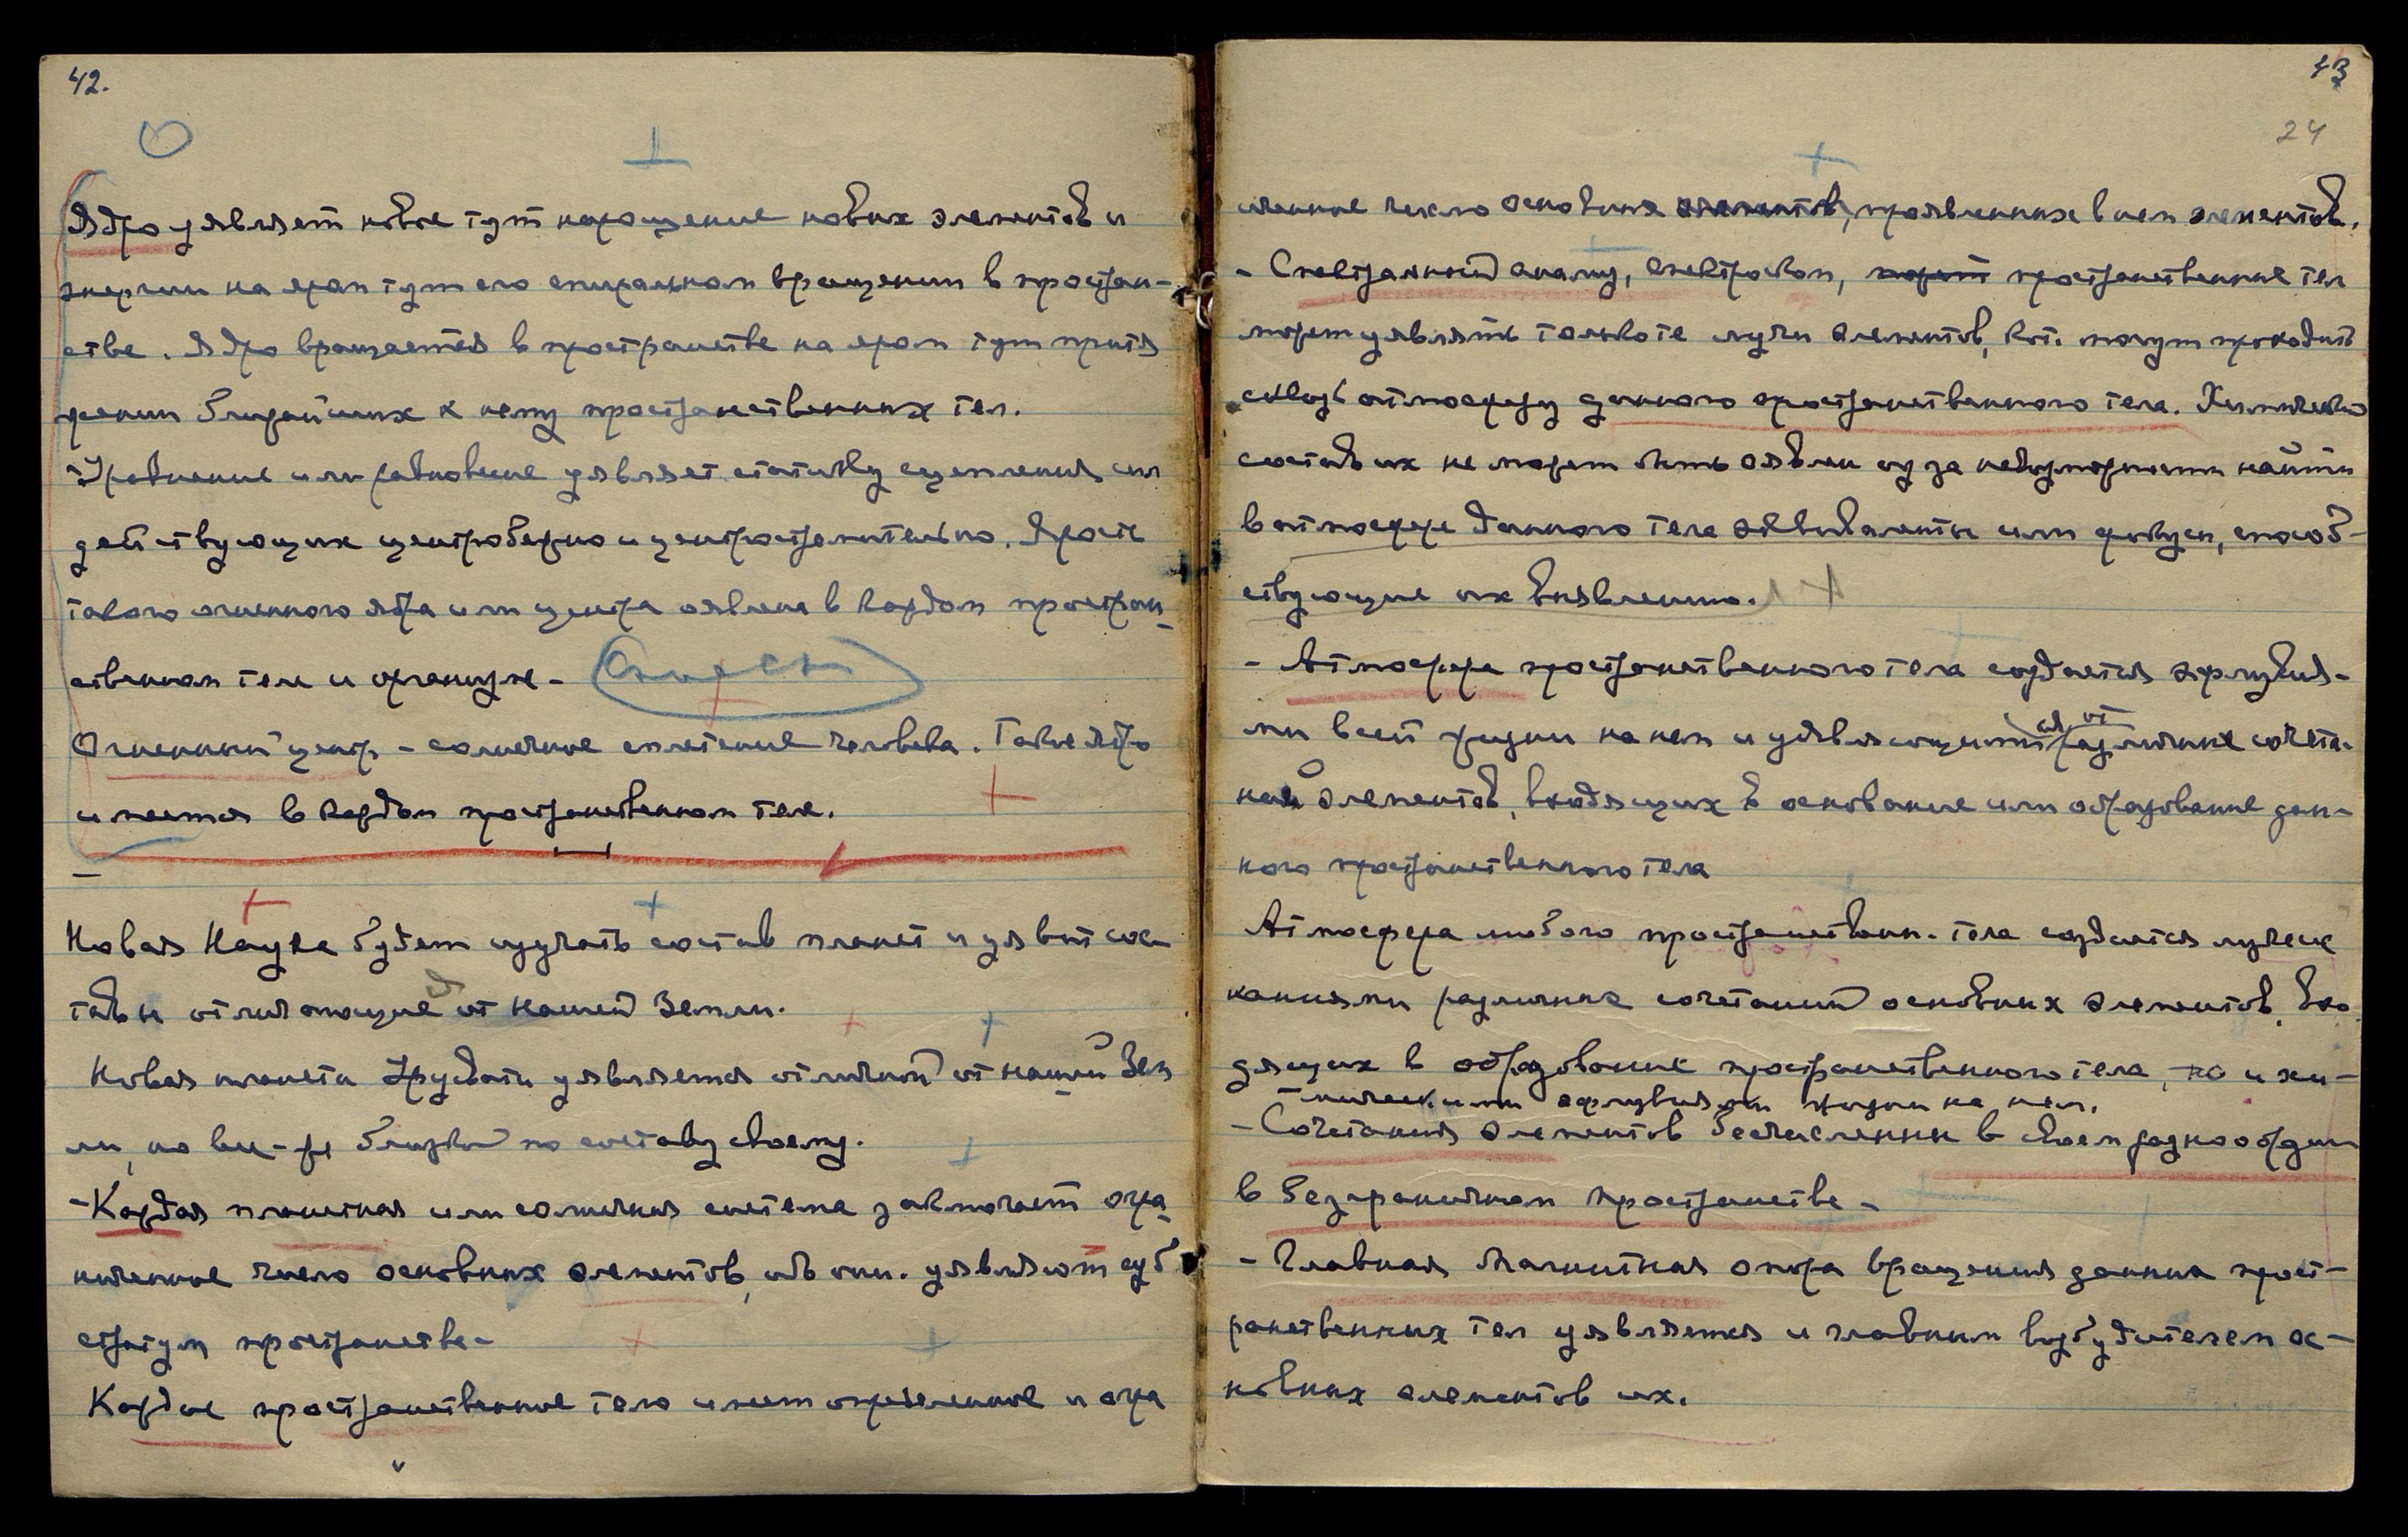 42.
Ядро уявляет новое тут нарощение новых элементов и
энергии на ярам тут его спиральном вращении в простран-
стве. Ядро вращается в пространстве на ярам тут притя
жении ближайших к нему пространственных тел.
Уравнение или равновесие уявляет статику сцепления сил
действующих центробежно и центростремительно. Ярость
такого огненного ядра или центра оявлена в каждом простран-
ственном теле и организме-
Огненный центр - солнечное сплетение человека. Такое ядро
имеется в каждом пространственном теле.
Новая Наука будет изучать состав планет и уявит сос-
тавы отличающиеся от нашей Земли.
Новая планета Урусвати уявляется отличной от нашей Зем
ли, но все-же близкой по составу своему.
-Каждая планетная или солнечная система заключает огра-
ниченное число основных элементов, ибо они уявляют суб
стратум пространства-
Каждое пространственное тело имеет определенное и огра
43
24
иченное число основных элементов, проявленных в нем элементов.
- Спектральный анализ, спектроскоп, может пространственных тел
может уявлять только те лучи элементов, кот. могут проходить
сквозь атмосферу данного пространственного тела. Химический
состав их не может быть оявлен из за невозможности найти
в атмосфере данного тела эквиваленты или фокусы, способ-
ствующие их выявлению.
- Атмосфера пространственного тела создается эфлувия-
ми всей жизни на нем и уявляющимися от различных сочета-
ний элементов, входящих в основание или образование дан-
ного пространственного тела
Атмосфера любого пространственн. тела создается лучеис
каниями различных сочетаний основных элементов, вхо
дящих в образование пространственного тела, но и хи-
мическими эфлувиями жизни на нем.
- Сочетания элементов бесчисленны в своем разнообразии
в безграничном пространстве-
- Главная магнитная опора вращения данных прост-
ранственных тел уявляется и главным возбудителем ос-
новных элементов их.